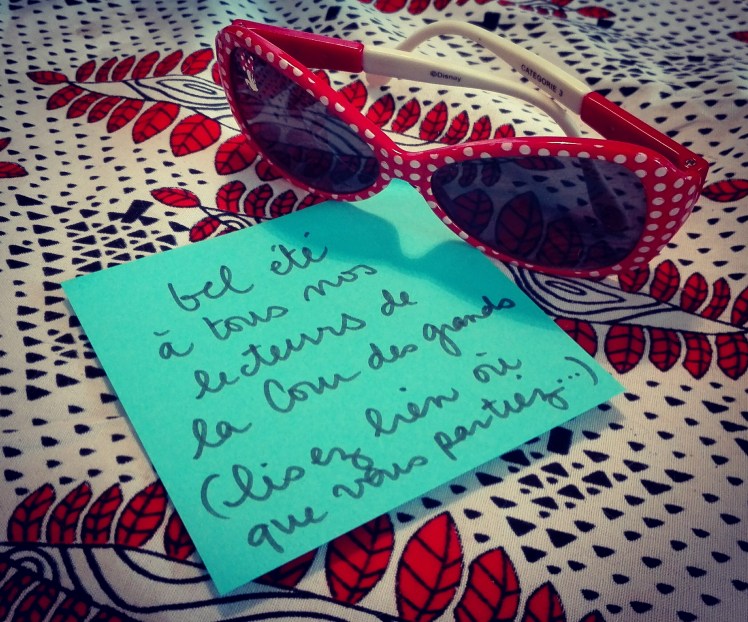 ©Disney
CATEGORIE 3
bel été
à tous nos
lecteurs de
la Cour des grands
(lisez bien où
que vous partiez...)